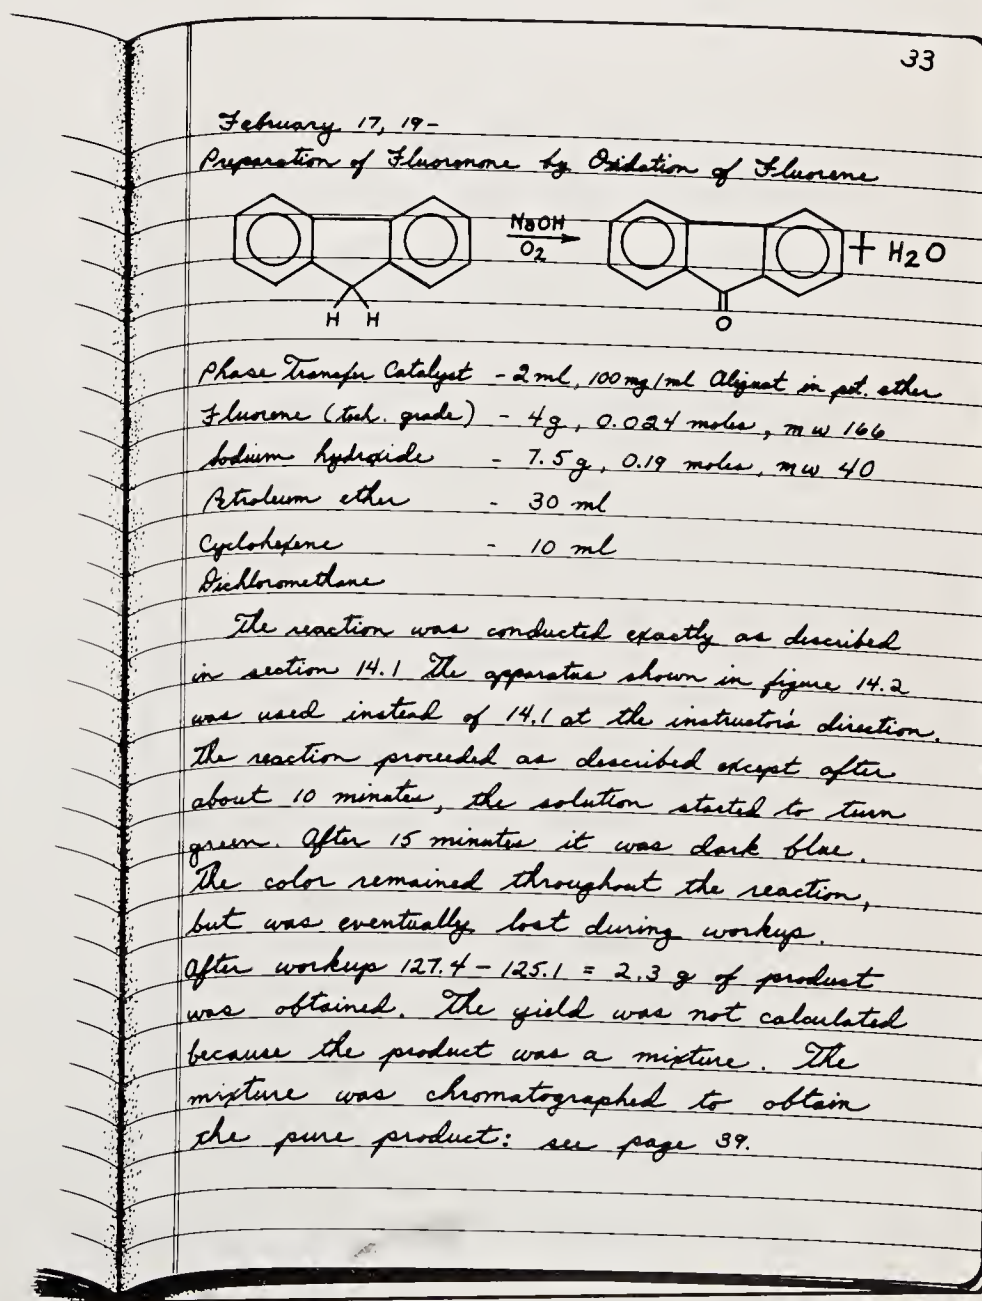 33
February 17, 19-
Preparation of Fluorenone by Oxidation of Fluorene
NaOH
O2
+ H2O
H H
O
Phase Transfer Catalyst - 2 ml, 100 mg/ml Aliquat in pet. ether
Fluorene (tech. grade) - 4 g, 0.024 moles, mw 166
Sodium hydroxide - 7.5 g, 0.19 moles, mw 40
Petroleum ether - 30 ml
Cyclohexene - 10 ml
Dichloromethane
The reaction was conducted exactly as described
in section 14.1 The apparatus shown in figure 14.2
was used instead of 14.1 at the instructor's direction.
The reaction proceeded as described except after
about 10 minutes, the solution started to turn
green. After 15 minutes it was dark blue.
The color remained throughout the reaction,
but was eventually lost during workup.
After workup 127.4 - 125.1 = 2.3 g of product
was obtained. The yield was not calculated
because the product was a mixture. The
mixture was chromatographed to obtain
the pure product: see page 39.